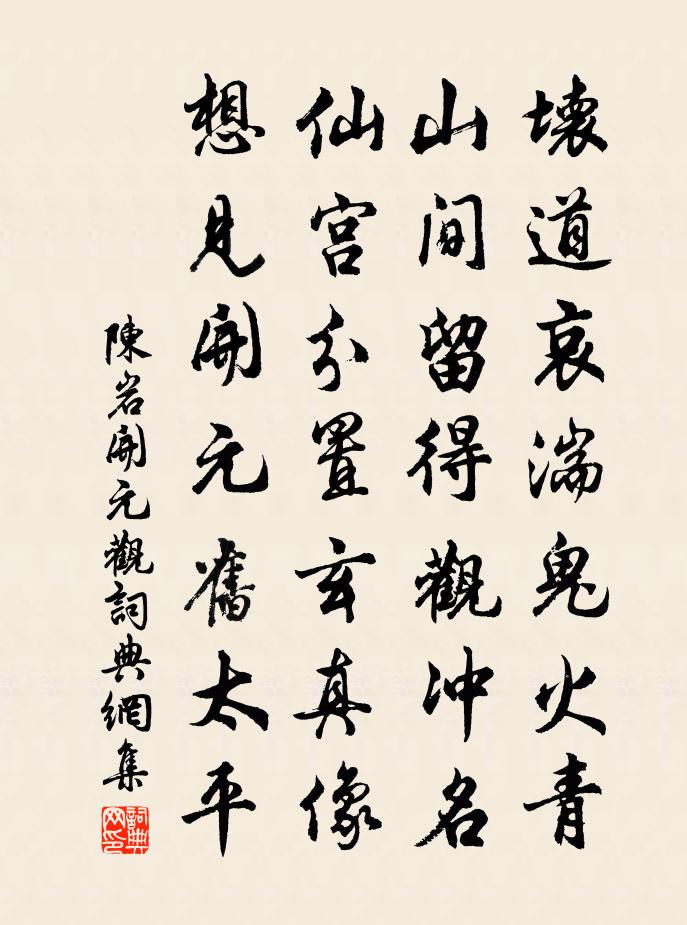 壞道哀湍鬼火青
山間留得觀沖名
仙宮分置玄真像
想見開元舊太平
陳岩開元觀詞典網集
詞典網印